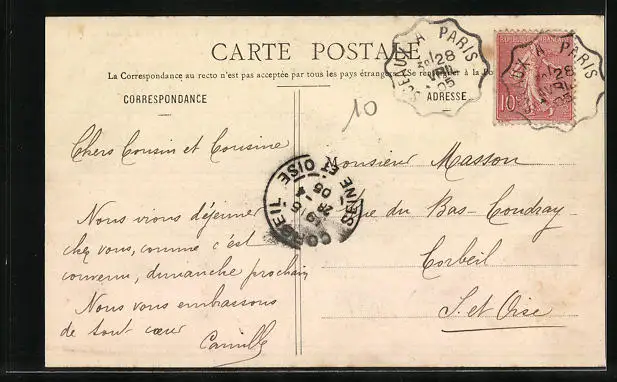 CARTE POSTALE
La Correspondance au recto n'est pas acceptée par tous les pays étrangers (Se renseigner à la Po
CORRESPONDANCE
ADRESSE
10
SCEAUX A PARIS
28
AVRIL
05
REPUBLIQUE FRANÇAISE
10c
UX A PARIS
28
AVRIL
05
Chers Cousin et Cousine
Nous vions déjeuner
chez vous, comme c'est
convenu, dimanche prochain
Nous vous embrassons
de tout cœur
Camille
CORBEIL
SEINE ET OISE
28 - 4
05
Monsieur Masson
Rue du Bas-Coudray
Corbeil
S. et Oise